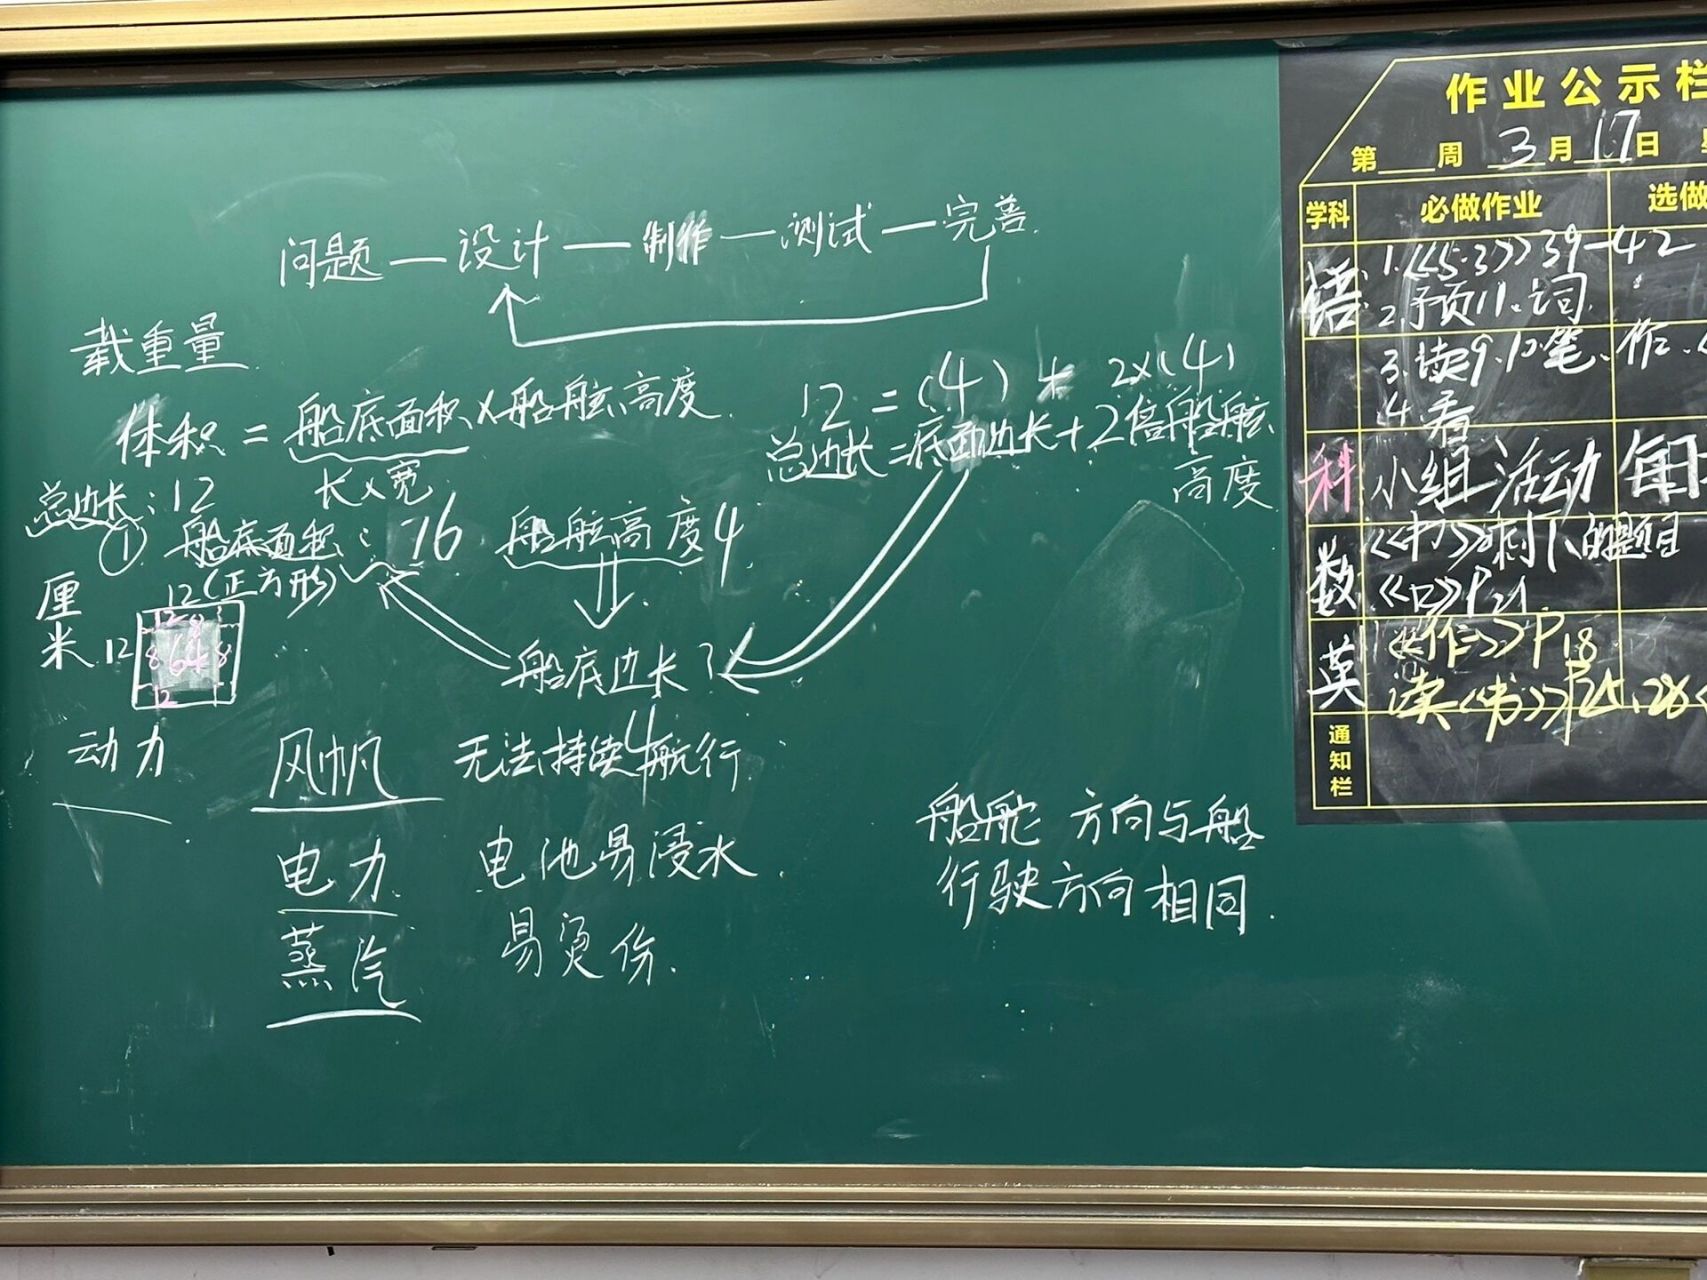 问题—设计—制作—测试—完善
载重量
体积=船底面积×船舷高度
长×宽
12=(4)+2×(4)
总边长=底面边长+2倍船舷
高度
总边长:12
① 船底面积:16 船舷高度4
12(正方形)
厘
米
12
12
8
8 64 8
12
船底边长?
4
动力
风帆 无法持续航行
电力 电池易浸水
蒸汽 易烫伤.
船舵方向与船
行驶方向相同.
作业公示栏
第 周 3月17日
学科 必做作业 选做
语 1.《5·3》39-42
2.预11.词
3.读9.10.笔.作.
4.看
科 小组活动
数 《书》剩下的题目
《口》P21
英 《作》P18
读《书》P25.28
通
知
栏